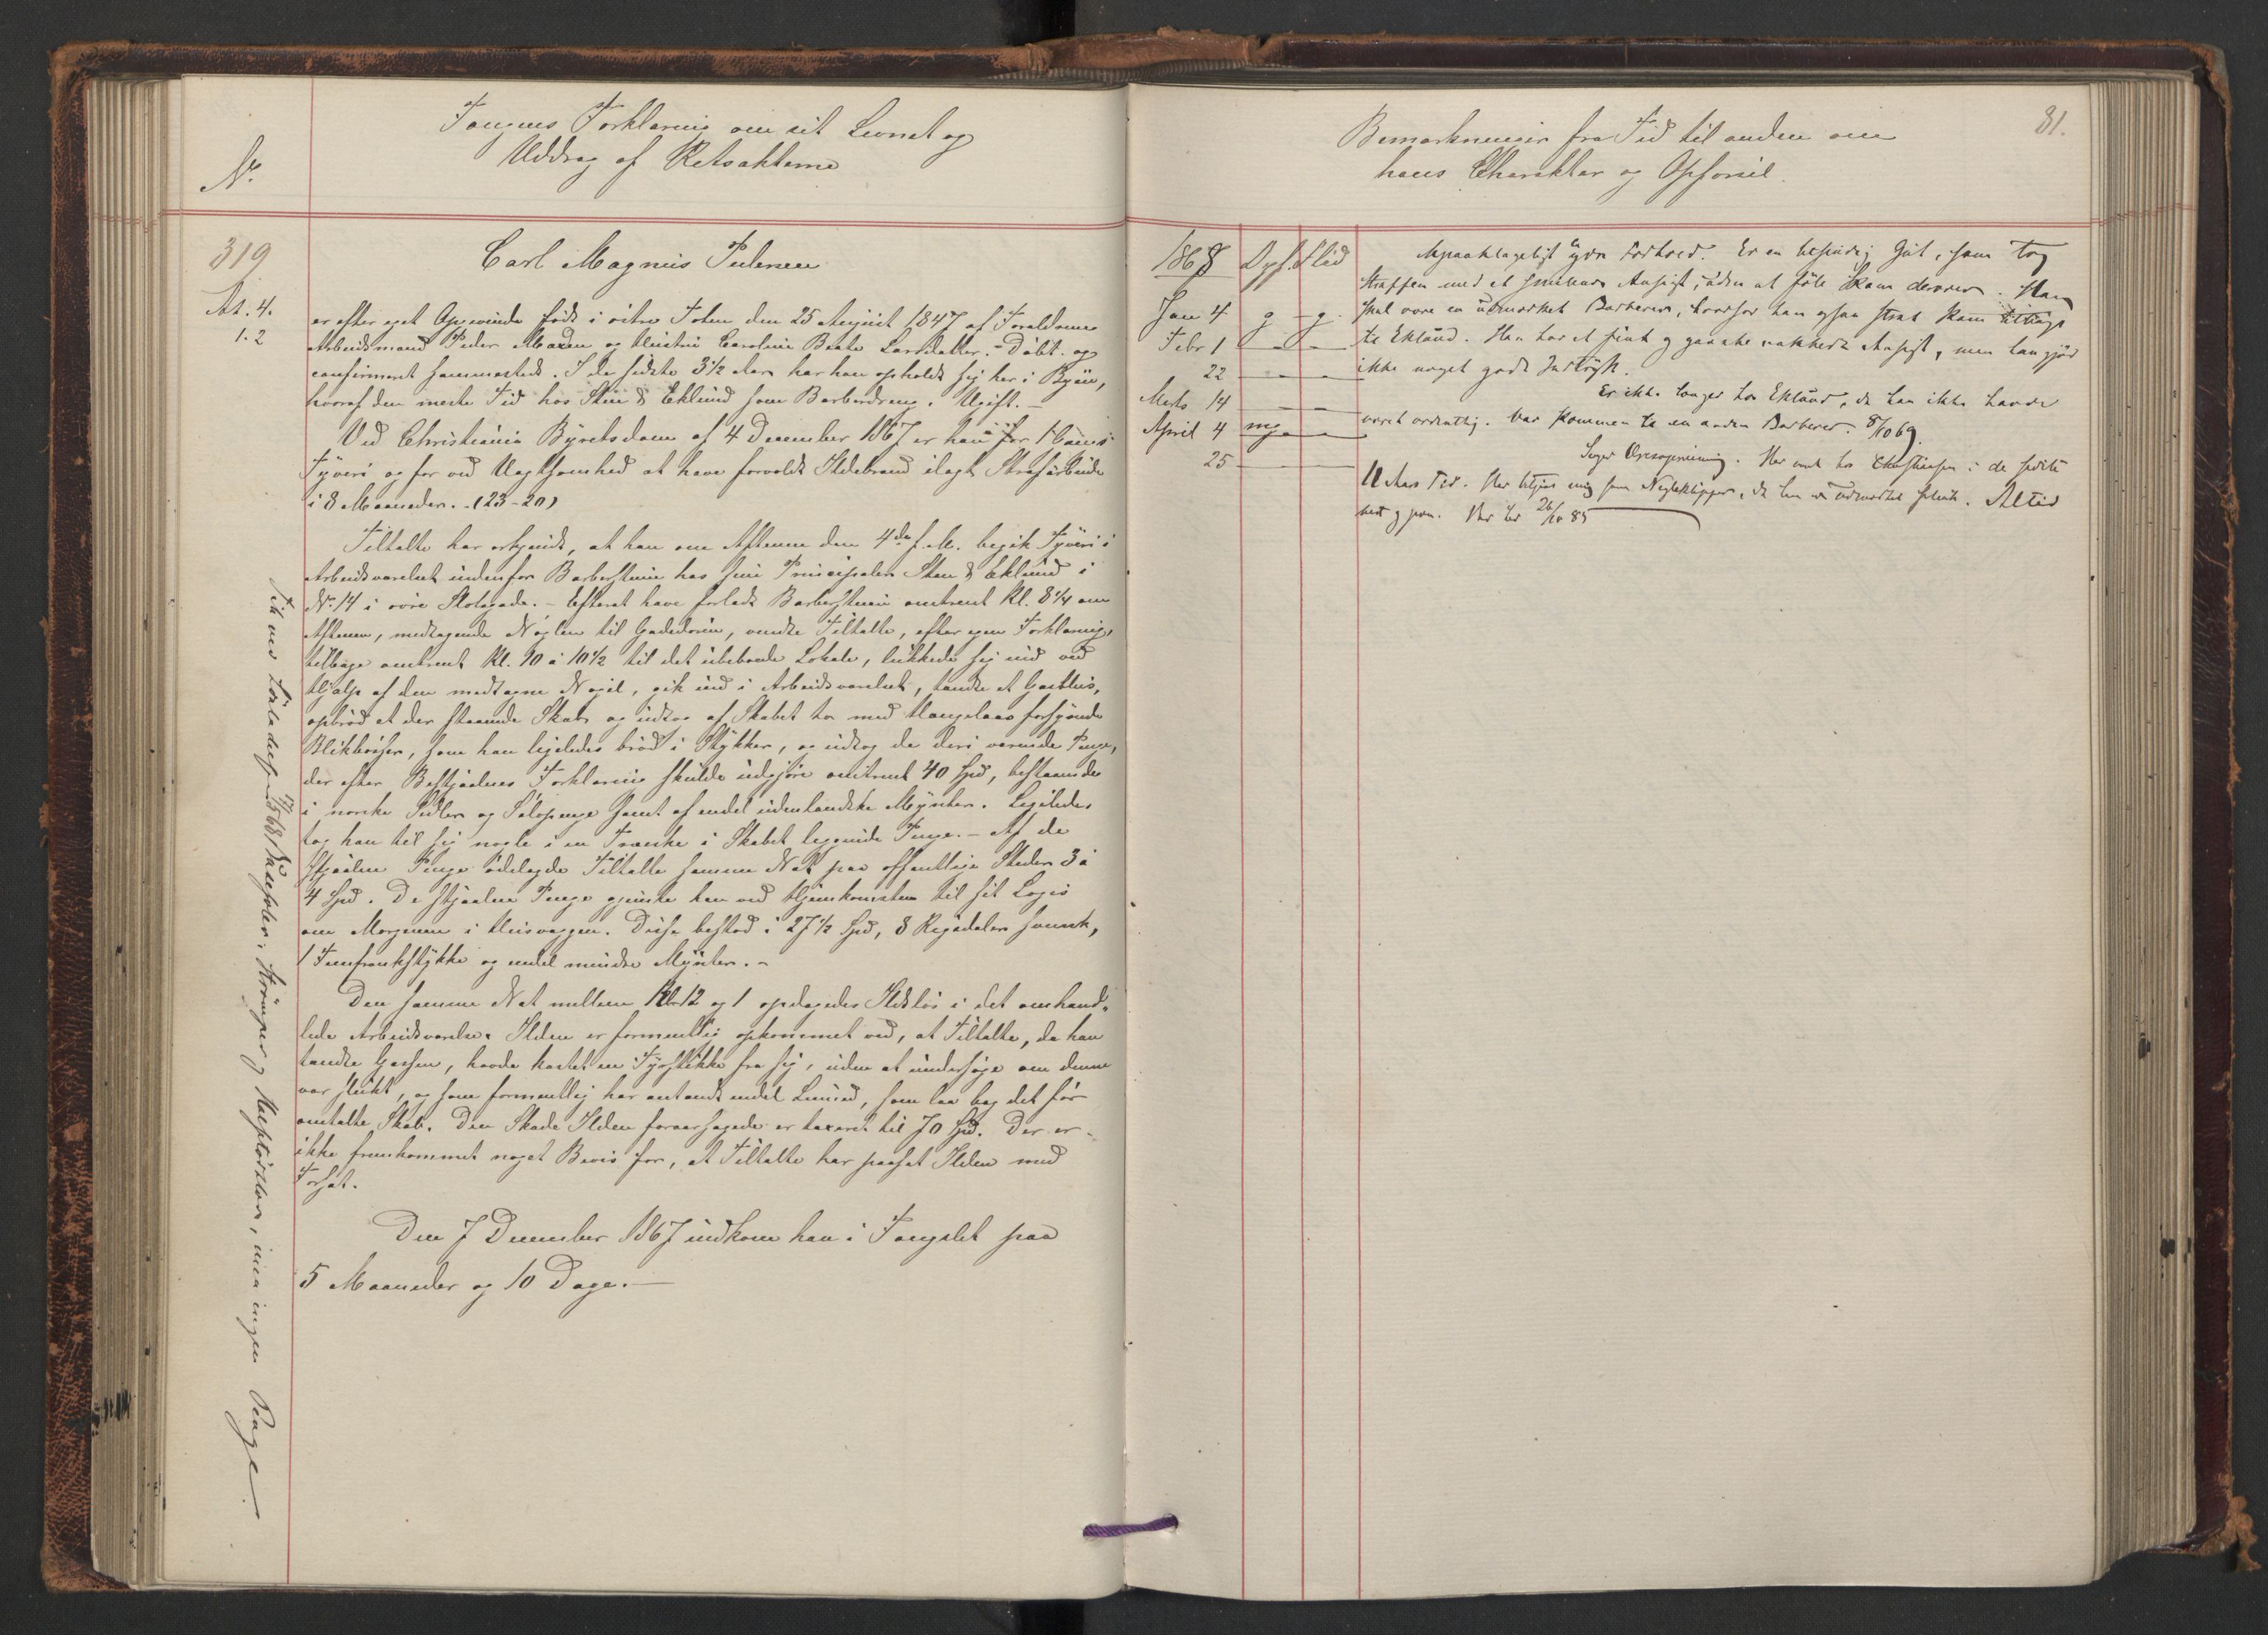 No.
Fangens Forklaring om sit Levnet og
Uddrag af Retsakterne
319
At. 4.
1.2
Carl Magnus Pedersen
er efter eget Opgivende født i østre Toten den 25 August 1847 af Forældrene
Arbeidsmand Peder Madsen og Hustru Caroline Beate Larsdatter. Døbt og
confirmeret sammesteds. I de sidste 3½ Aar har han opholdt sig her i Byen,
hvoraf den meste Tid hos Sten & Eklund som Barberdreng. Ugift. –
Ved Christiania Byretsdom af 4 December 1867 er han for 1 Gangs
Tyveri og for ved Uagtsomhed at have forvoldt Ildebrand ilagt Strafarbeide
i 8 Maaneder. - (23-20)
Tiltalte har erkjendt, at han om Aftenen den 4de f.M. begik Tyveri i
Arbeidsværelset indenfor Barberstuen hos sine Principaler Sten & Eklund i
No. 14 i øvre Slotsgade. – Efterat have forladt Barberstuen omtrent Kl. 8¼ om
Aftenen, medtagende Nøglen til Gadedøren, vendte Tiltalte, efter egen Forklaring,
tilbage omtrent Kl. 10 à 10½ til det ubeboede Lokale, lukkede sig ind ved
Hjælp af den medtagne Nøgel, gik ind i Arbeidsværelset, tændte et Gasblus,
opbrød et der staaende Skab og udtog af Skabet to med Hængelaas forsynede
Blikbøsser, som han ligeledes brød i Stykker, og udtog de deri værende Penge,
der efter Bestjaalnes Forklaring skulde udgjøre omtrent 40 Spd, bestaaende
i norske Sedler og Sølvpenge samt af endel udenlandske Mynter. Ligeledes
tog han til sig nogle i en Træske i Skabet liggende Penge. – Af de
stjaalne Penge ødelagde Tiltalte samme Nat paa offentlige Steder 3 à
4 Spd. De stjaalne Penge gjemte han ved Hjemkomsten til sit Logis
om Morgenen i Husvæggen. Disse bestod i 27½ Spd, 8 Rigsdaler svensk,
1 Femfrankstykke og endel mindre Mynter. –
Den samme Nat mellem Kl. 12 og 1 opdagedes Ildsløs i det omhand-
lede Arbeidsværelse. Ilden er formentlig opkommet ved, at Tiltalte, da han
tændte Gassen, havde kastet en Fyrstikke fra sig, uden at undersøge om denne
var slukt, og som formentlig har antændt endel Linned, som laa bag det før
omtalte Skab. Den Skade Ilden foraarsagede er taxeret til 70 Spd. Der er
ikke fremkommet noget Bevis for, at Tiltalte har paasat Ilden med
Forsæt.
Den 7 December 1867 indkom han i Fængslet paa
5 Maaneder og 10 Dage. –
Fik ved Løsladelsen 17/5 68 Strømper og Halstørklæ, men ingen Penge.
Bemærkninger fra Tid til anden om
hans Charakter og Opførsel.
81.
1868 Opf. Flid
Jan 4 g g.
Febr 1 – –
22 – –
Marts 14 – –
April 4 mg. –
25 – –
Upaaklageligt ydre Forhold. Er en besindig Gut, som tog
Straffen med et smilende Ansigt, uden at føle Skam derover. Han
skal være en udmærket Barberer, hvorfor han ogsaa strax kom tilbage
til Eklund. Han har et fint og ganske vakkert Ansigt, men han gjør
ikke noget godt Indtryk.
Er ikke længer hos Eklund, da han ikke havde
været ordentlig. Var kommen til en anden Barberer. 8/10 69.
Søger Æresopreisning. Har været hos Christiansen i de sidste
11 Aars Tid. Har betjent mig som Negleklipper, da han er udmærket flink. Altid
net og pen. 26/10 85